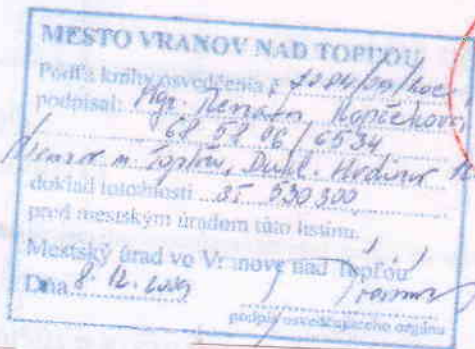 MESTO VRANOV NAD TOPĽOU
Podľa knihy osvedčenia č.
podpísal: Mgr. Renata Kopčeková
/6534
n. Topľou, Dukl. Hrdinov
doklad totožnosti 530300
pred mestským úradom túto listinu.
Mestský úrad vo Vranove nad Topľou
Dňa 8. 12.
podpis osvedčujúceho orgánu